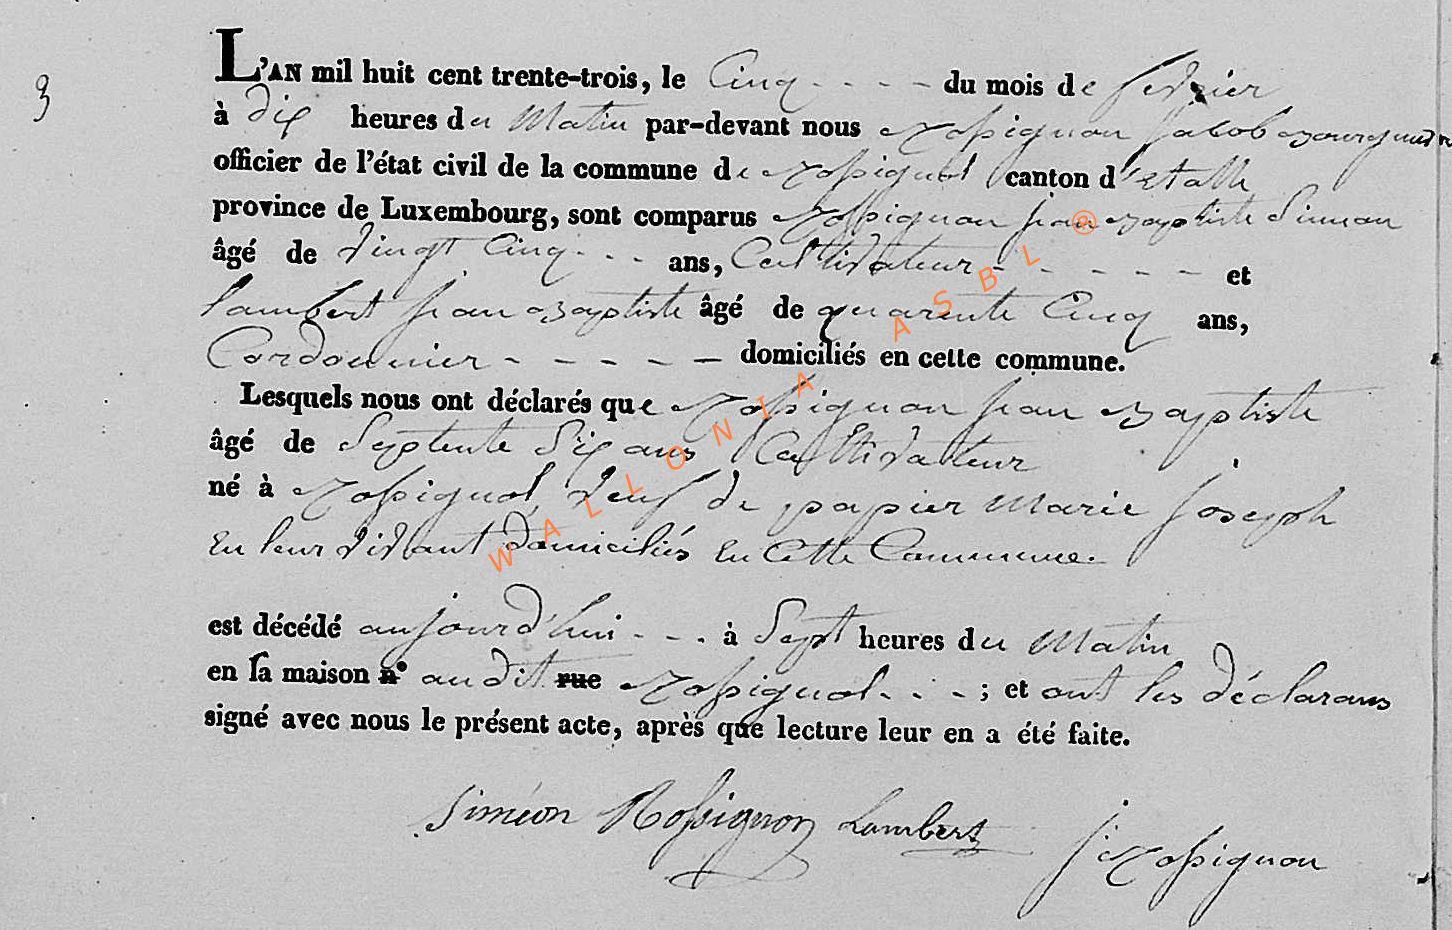 3
L'AN mil huit cent trente-trois, le Cinq - - - - du mois de fevrier
à dix heures du Matin par-devant nous Rossignon Jacob Bourguemr
officier de l'état civil de la commune de Rossignol canton d'Etalle
province de Luxembourg, sont comparus Rossignon jean Baptiste Simeon
âgé de Vingt Cinq - - - ans, Cultivateur - - - - - - et
Lambert jean Baptiste âgé de quarente Cinq ans,
Cordonnier - - - - - - domiciliés en cette commune.
Lesquels nous ont déclarés que Rossignon jean Baptiste
âgé de Septente Six ans Cultivateur
né à Rossignol, Veuf de papier Marie joseph
En leur Vivant domiciliés En Cette Commune.
est décédé aujourd'hui - - - à Sept heures du Matin
en la maison n° au dit rue Rossignol - - - ; et ont les déclarans
signé avec nous le présent acte, après que lecture leur en a été faite.
Siméon Rossignon Lambert j. Rossignon
WALLONIA ASBL ®